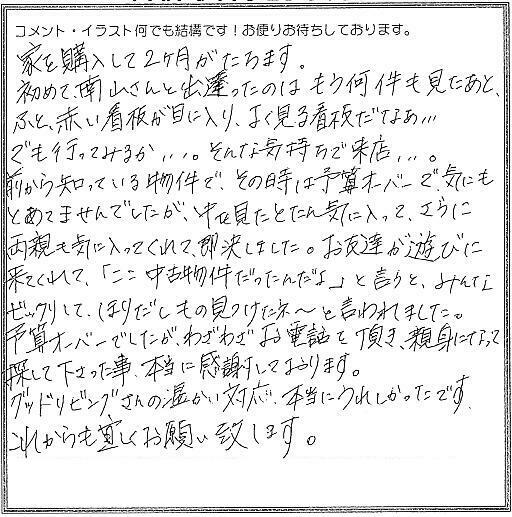 コメント・イラスト何でも結構です！お便りお待ちしております。
家を購入して2ヶ月がたちます。
初めて、南山さんと出逢ったのは もう何件も見たあと、
ふと、赤い看板が目に入り、よく見る看板だなぁ…
でも行ってみるか…。そんな気持ちで来店…。
前から知っている物件で、その時は予算オーバーで、気にも
とめてませんでしたが、中を見たとたん気に入って、さらに
両親も気に入ってくれて、即決しました。お友達が遊びに
来てくれて、「ここ中古物件だったんだよ」と言うと、みんな
ビックリして、ほりだしもの見つけたネ～と言われました。
予算オーバーでしたが、わざわざお電話を頂き、親身になって
探して下さった事、本当に感謝しております。
グッドリビングさんの温かい対応、本当にうれしかったです。
これからも宜しくお願い致します。